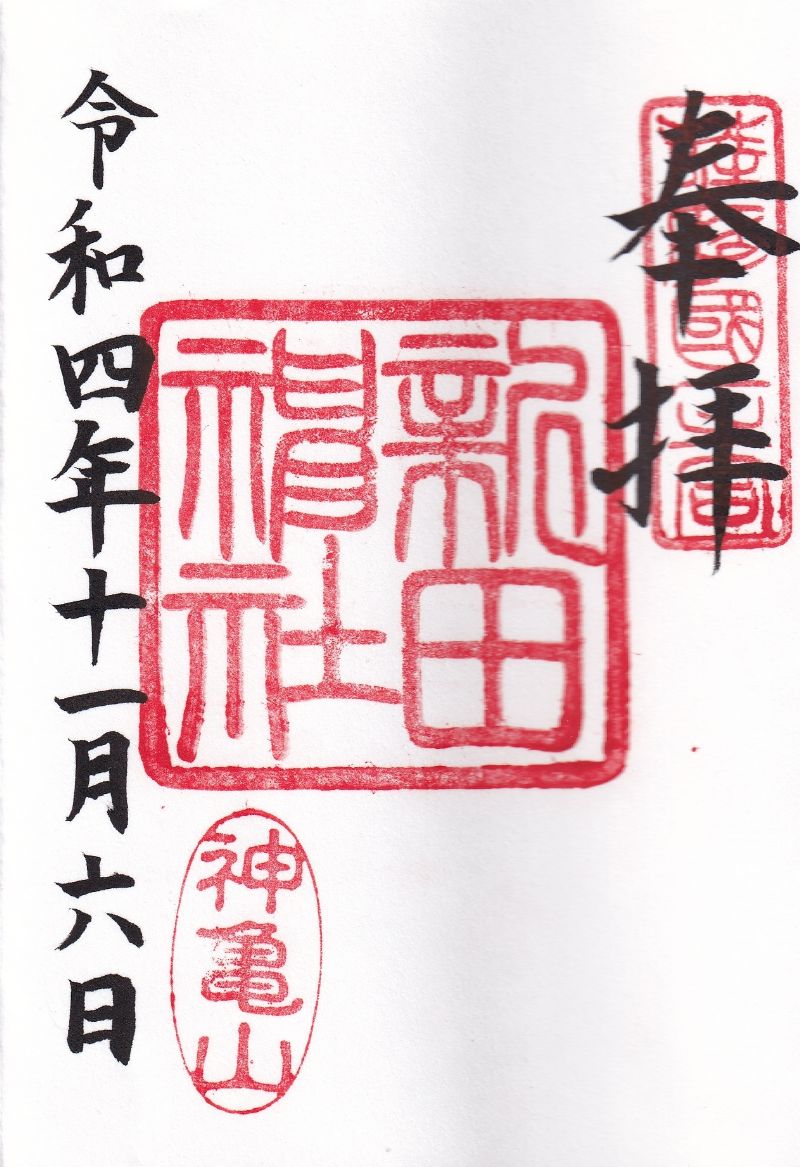 奉拝
薩摩國一宮
新田
神社
令和四年十一月六日
神亀山